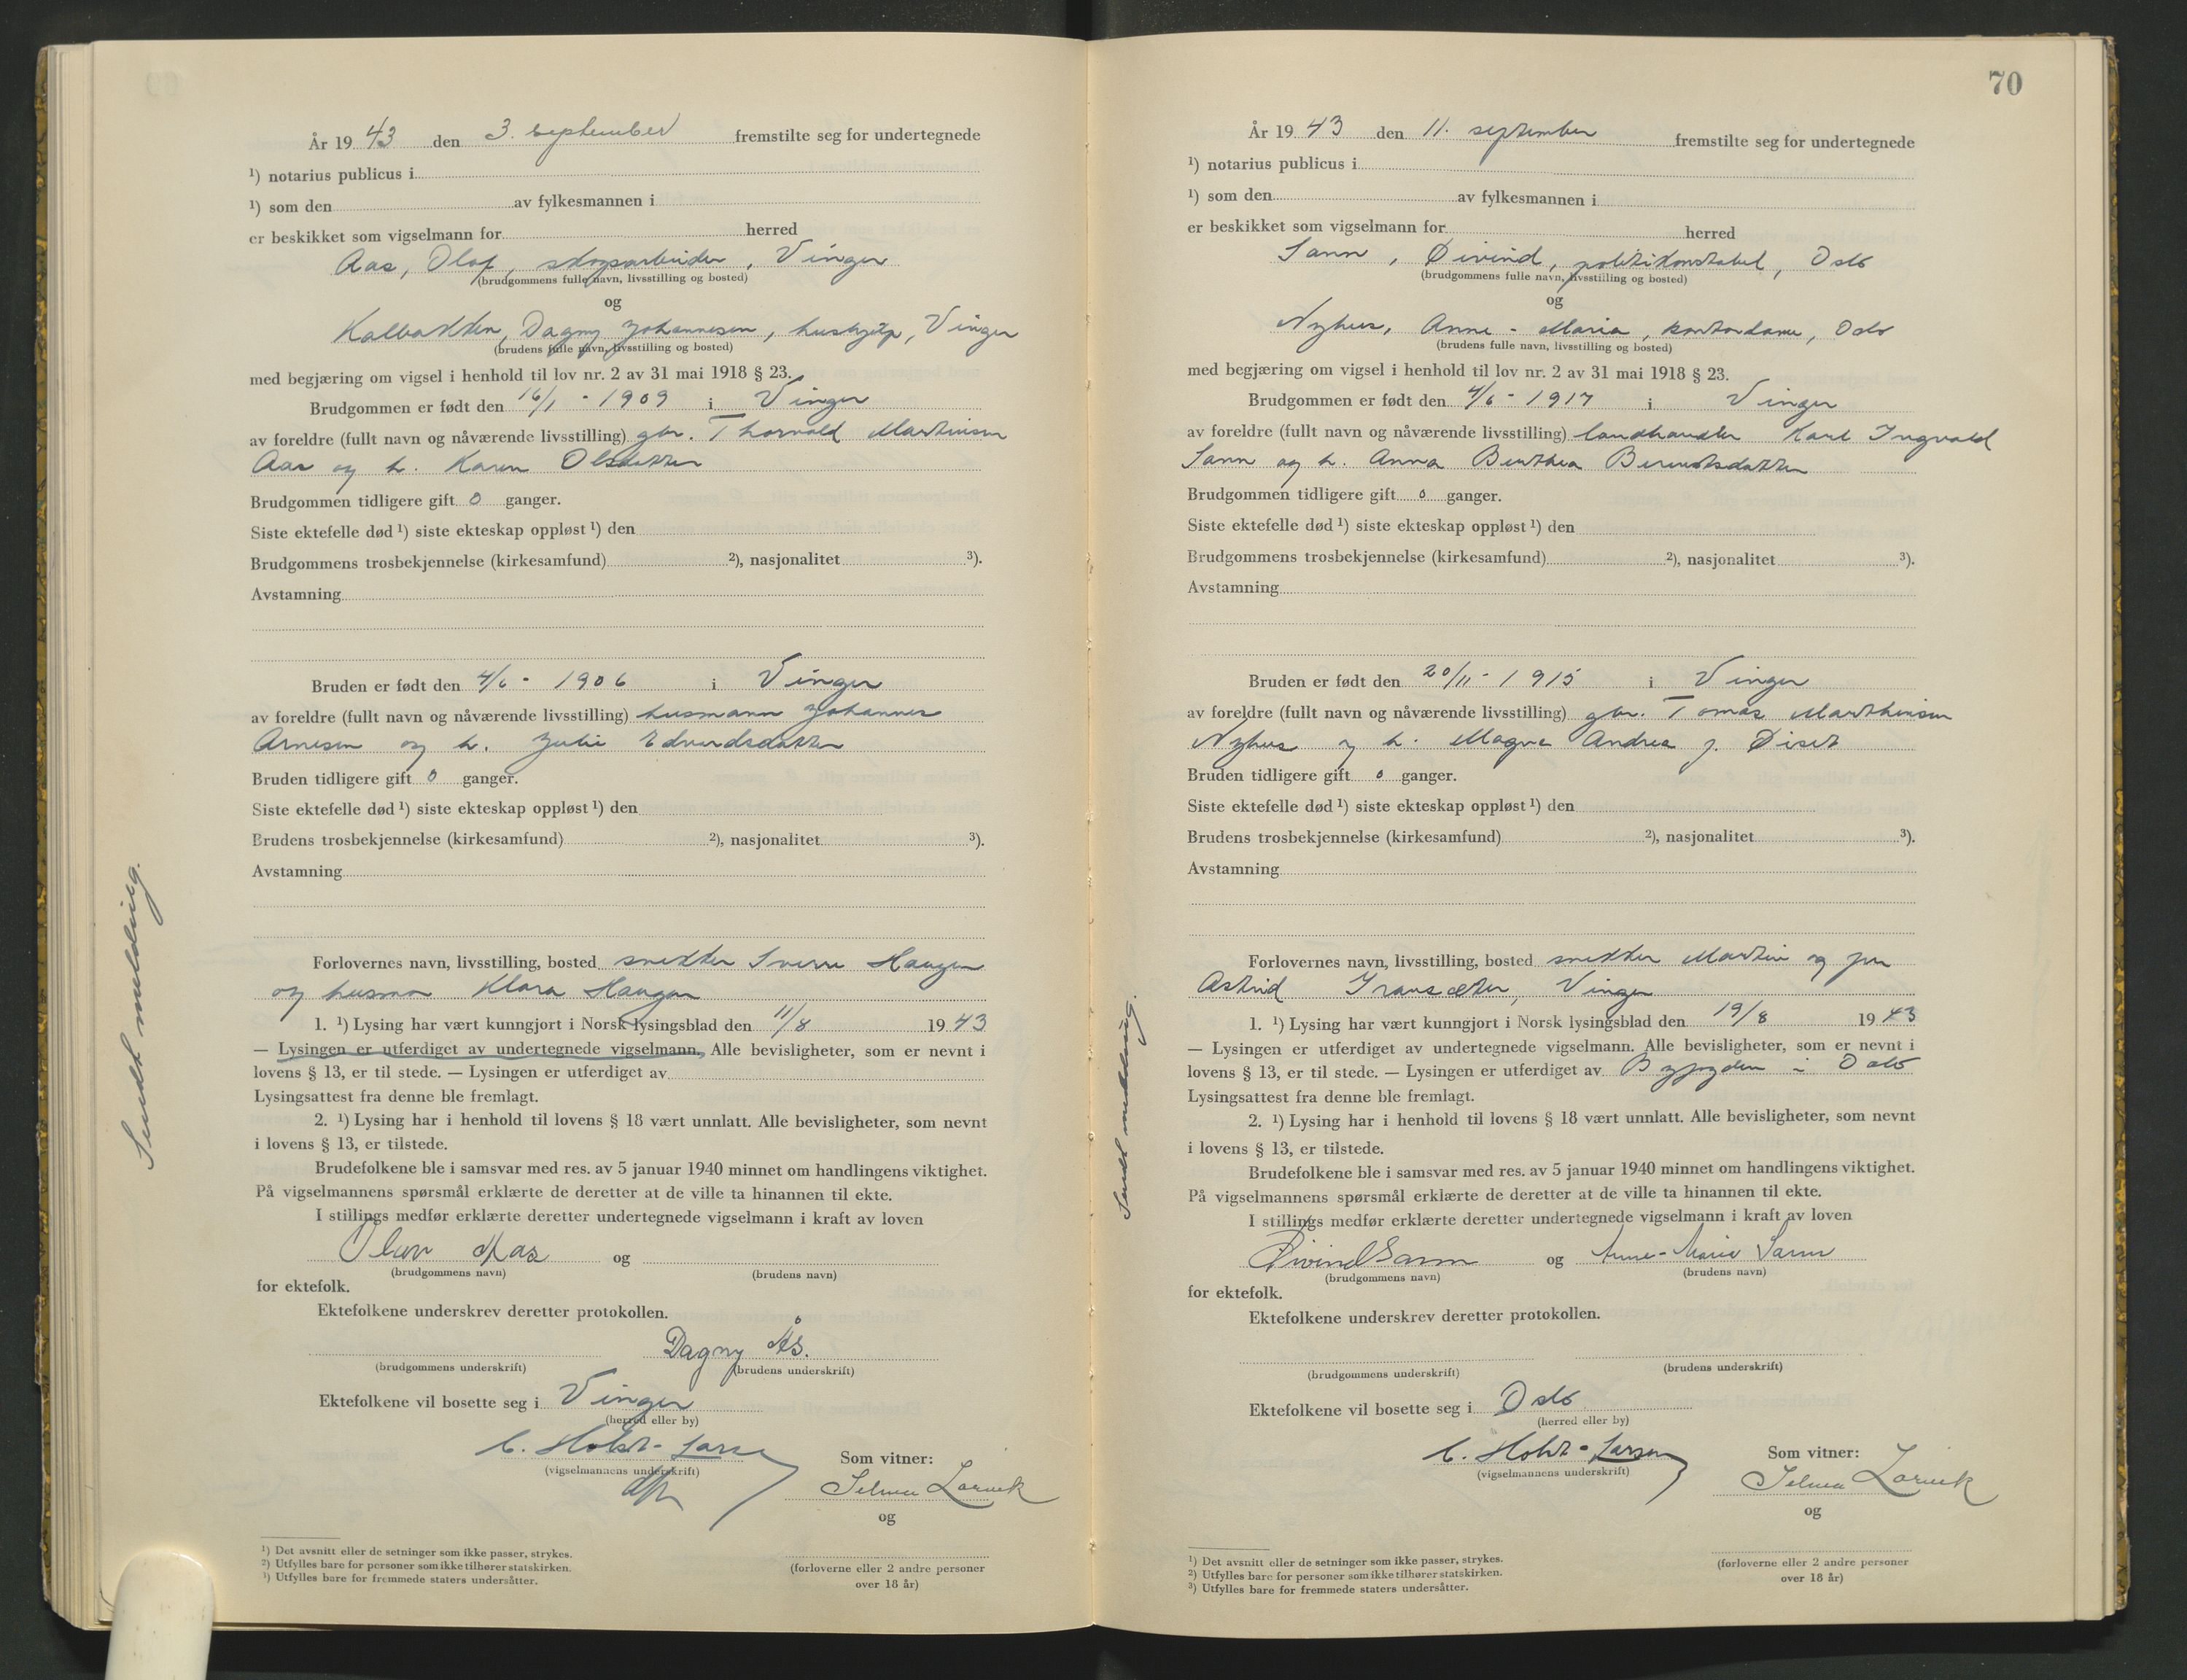 År 19 43 den 3. september fremstilte seg for undertegnede
¹) notarius publicus i
¹) som den av fylkesmannen i
er beskikket som vigselmann for herred
Aas, Olaf, skogsarbeider, Vinger
(brudgommens fulle navn, livsstilling og bosted)
og
Kalbakken, Dagny Johannesen, hushjelp, Vinger
(brudens fulle navn, livsstilling og bosted)
med begjæring om vigsel i henhold til lov nr. 2 av 31 mai 1918 § 23.
Brudgommen er født den 16/1 - 1909 i Vinger
av foreldre (fullt navn og nåværende livsstilling) gbr. Thorvald Martinsen
Aas og h. Karen Olsdatter
Brudgommen tidligere gift 0 ganger.
Siste ektefelle død ¹) siste ekteskap oppløst ¹) den
Brudgommens trosbekjennelse (kirkesamfund) ²), nasjonalitet ³).
Avstamning
Bruden er født den 4/6 - 1906 i Vinger
av foreldre (fullt navn og nåværende livsstilling) husmann Johannes
Arnesen og h. Julie Edvardsdatter
Bruden tidligere gift 0 ganger.
Siste ektefelle død ¹) siste ekteskap oppløst ¹) den
Brudens trosbekjennelse (kirkesamfund) ²), nasjonalitet ³).
Avstamning
Forlovernes navn, livsstilling, bosted snekker Sverre Haugen
og husmor Klara Haugen
1. ¹) Lysing har vært kunngjort i Norsk lysingsblad den 11/8 19 43
— Lysingen er utferdiget av undertegnede vigselmann. Alle bevisligheter, som er nevnt i
lovens § 13, er til stede. — Lysingen er utferdiget av
Lysingsattest fra denne ble fremlagt.
2. ¹) Lysing har i henhold til lovens § 18 vært unnlatt. Alle bevisligheter, som nevnt
i lovens § 13, er tilstede.
Brudefolkene ble i samsvar med res. av 5 januar 1940 minnet om handlingens viktighet.
På vigselmannens spørsmål erklærte de deretter at de ville ta hinannen til ekte.
I stillings medfør erklærte deretter undertegnede vigselmann i kraft av loven
Olav Aas og
(brudgommens navn) (brudens navn)
for ektefolk.
Ektefolkene underskrev deretter protokollen.
Dagny Ås.
(brudgommens underskrift) (brudens underskrift)
Ektefolkene vil bosette seg i Vinger
(herred eller by)
C. Holst-Larsen Som vitner:
(vigselmannens underskrift)
Selma Larvik
og
(forloverne eller 2 andre personer
over 18 år)
¹) Det avsnitt eller de setninger som ikke passer, strykes.
²) Utfylles bare for personer som ikke tilhører statskirken.
³) Utfylles bare for fremmede staters undersåtter.
Sendt melding.
70
År 19 43 den 11. september fremstilte seg for undertegnede
¹) notarius publicus i
¹) som den av fylkesmannen i
er beskikket som vigselmann for herred
Sann, Øivind, politikonstabel, Oslo
(brudgommens fulle navn, livsstilling og bosted)
og
Nyhus, Anne-Maria, kontordame, Oslo
(brudens fulle navn, livsstilling og bosted)
med begjæring om vigsel i henhold til lov nr. 2 av 31 mai 1918 § 23.
Brudgommen er født den 4/6 - 1917 i Vinger
av foreldre (fullt navn og nåværende livsstilling) landhandler Karl Ingvald
Sann og h. Anna Benthea Berntsdatter
Brudgommen tidligere gift 0 ganger.
Siste ektefelle død ¹) siste ekteskap oppløst ¹) den
Brudgommens trosbekjennelse (kirkesamfund) ²), nasjonalitet ³).
Avstamning
Bruden er født den 20/11 - 1915 i Vinger
av foreldre (fullt navn og nåværende livsstilling) gbr. Tomas Marthinsen
Nyhus og h. Magna Andrea f. Øiset
Bruden tidligere gift 0 ganger.
Siste ektefelle død ¹) siste ekteskap oppløst ¹) den
Brudens trosbekjennelse (kirkesamfund) ²), nasjonalitet ³).
Avstamning
Forlovernes navn, livsstilling, bosted snekker Martin og fru
Astrid Vinger
1. ¹) Lysing har vært kunngjort i Norsk lysingsblad den 19/8 19 43
— Lysingen er utferdiget av undertegnede vigselmann. Alle bevisligheter, som er nevnt i
lovens § 13, er til stede. — Lysingen er utferdiget av Byfogden i Oslo
Lysingsattest fra denne ble fremlagt.
2. ¹) Lysing har i henhold til lovens § 18 vært unnlatt. Alle bevisligheter, som nevnt
i lovens § 13, er tilstede.
Brudefolkene ble i samsvar med res. av 5 januar 1940 minnet om handlingens viktighet.
På vigselmannens spørsmål erklærte de deretter at de ville ta hinannen til ekte.
I stillings medfør erklærte deretter undertegnede vigselmann i kraft av loven
Øivind Sann og Anne-Marie Sann
(brudgommens navn) (brudens navn)
for ektefolk.
Ektefolkene underskrev deretter protokollen.
(brudgommens underskrift) (brudens underskrift)
Ektefolkene vil bosette seg i Oslo
(herred eller by)
C. Holst-Larsen Som vitner:
(vigselmannens underskrift)
Selma Larvik
og
(forloverne eller 2 andre personer
over 18 år)
¹) Det avsnitt eller de setninger som ikke passer, strykes.
²) Utfylles bare for personer som ikke tilhører statskirken.
³) Utfylles bare for fremmede staters undersåtter.
Sendt melding.